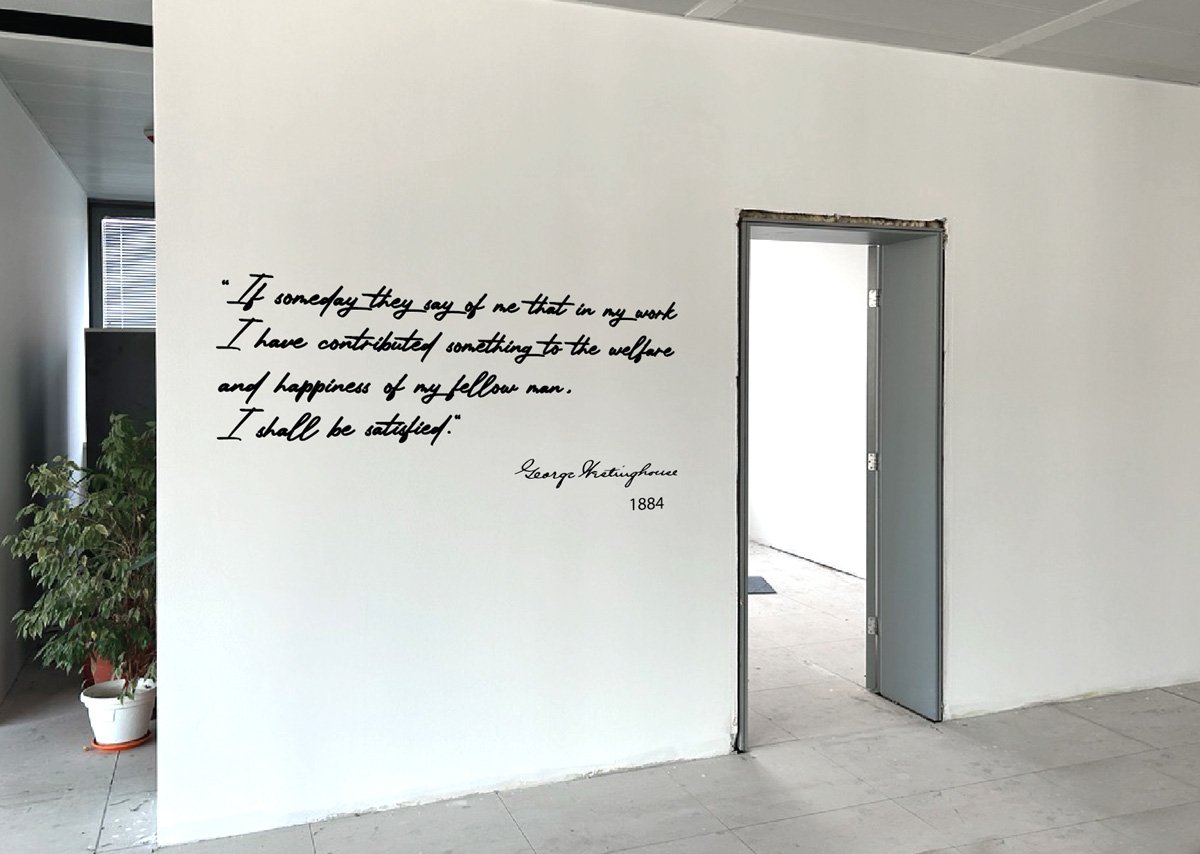 “If someday they say of me that in my work
I have contributed something to the welfare
and happiness of my fellow man.
I shall be satisfied.“
George Westinghouse
1884